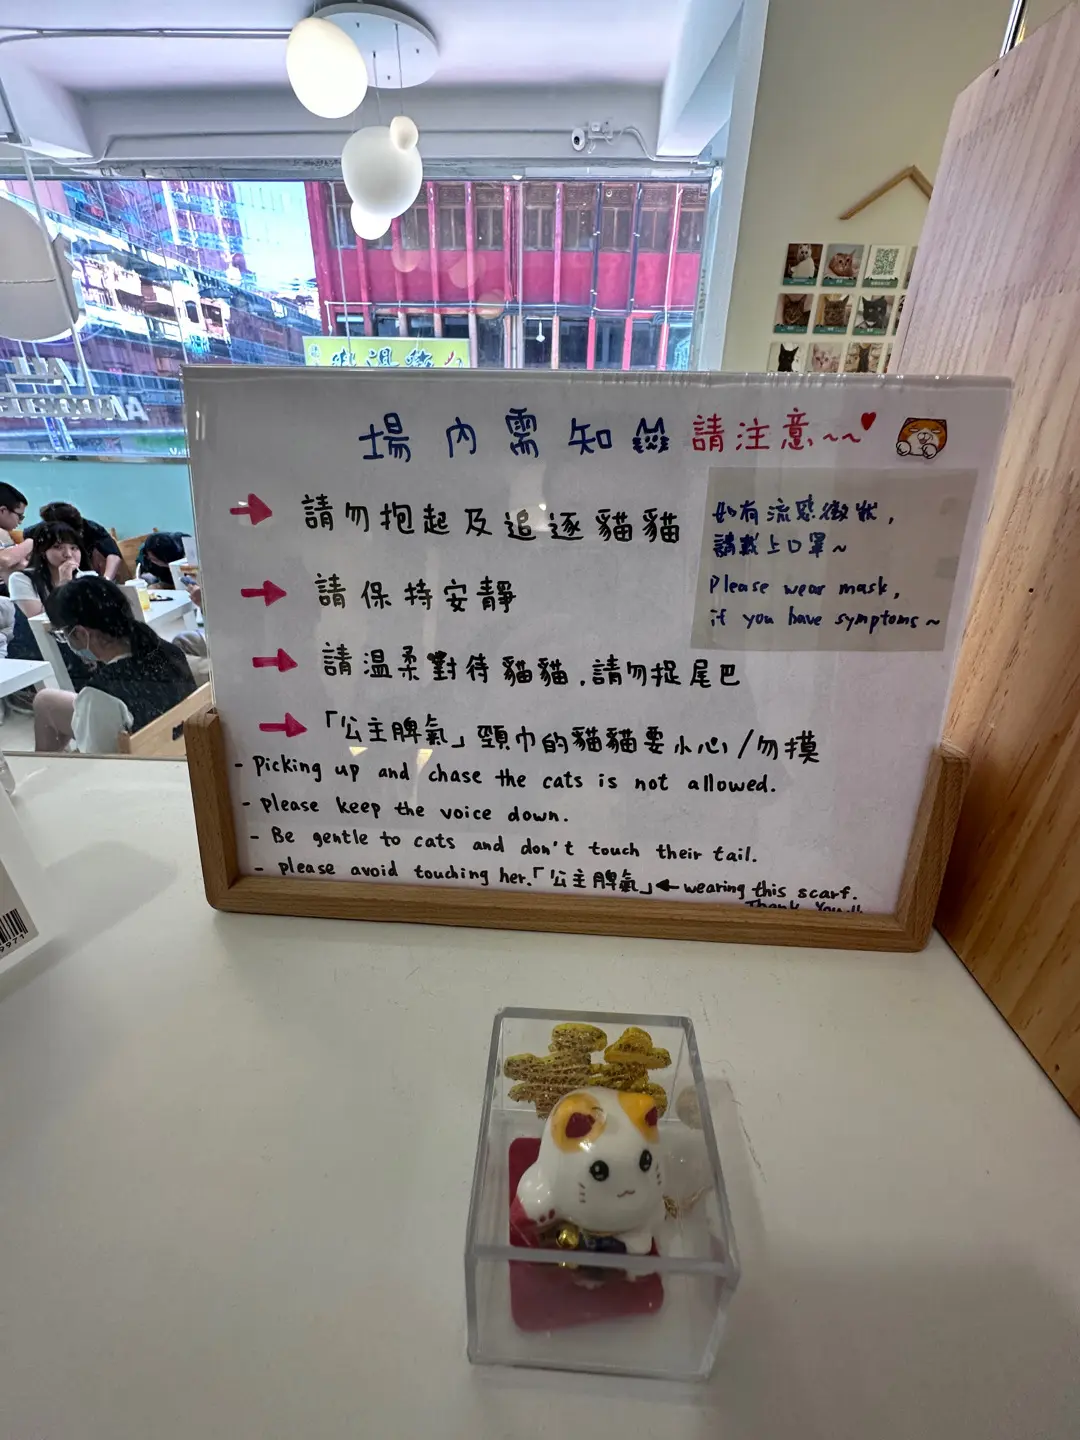 場內需知 請注意~~
請勿抱起及追逐貓貓
請保持安靜
請溫柔對待貓貓.請勿捉尾巴
「公主脾氣」頸巾的貓貓要小心/勿摸
- picking up and chase the cats is not allowed.
- please keep the voice down.
- Be gentle to cats and don't touch their tail.
- please avoid touching her.「公主脾氣」← wearing this scarf.
Thank You!!
如有流感徵狀,
請戴上口罩~
Please wear mask,
if you have symptoms~